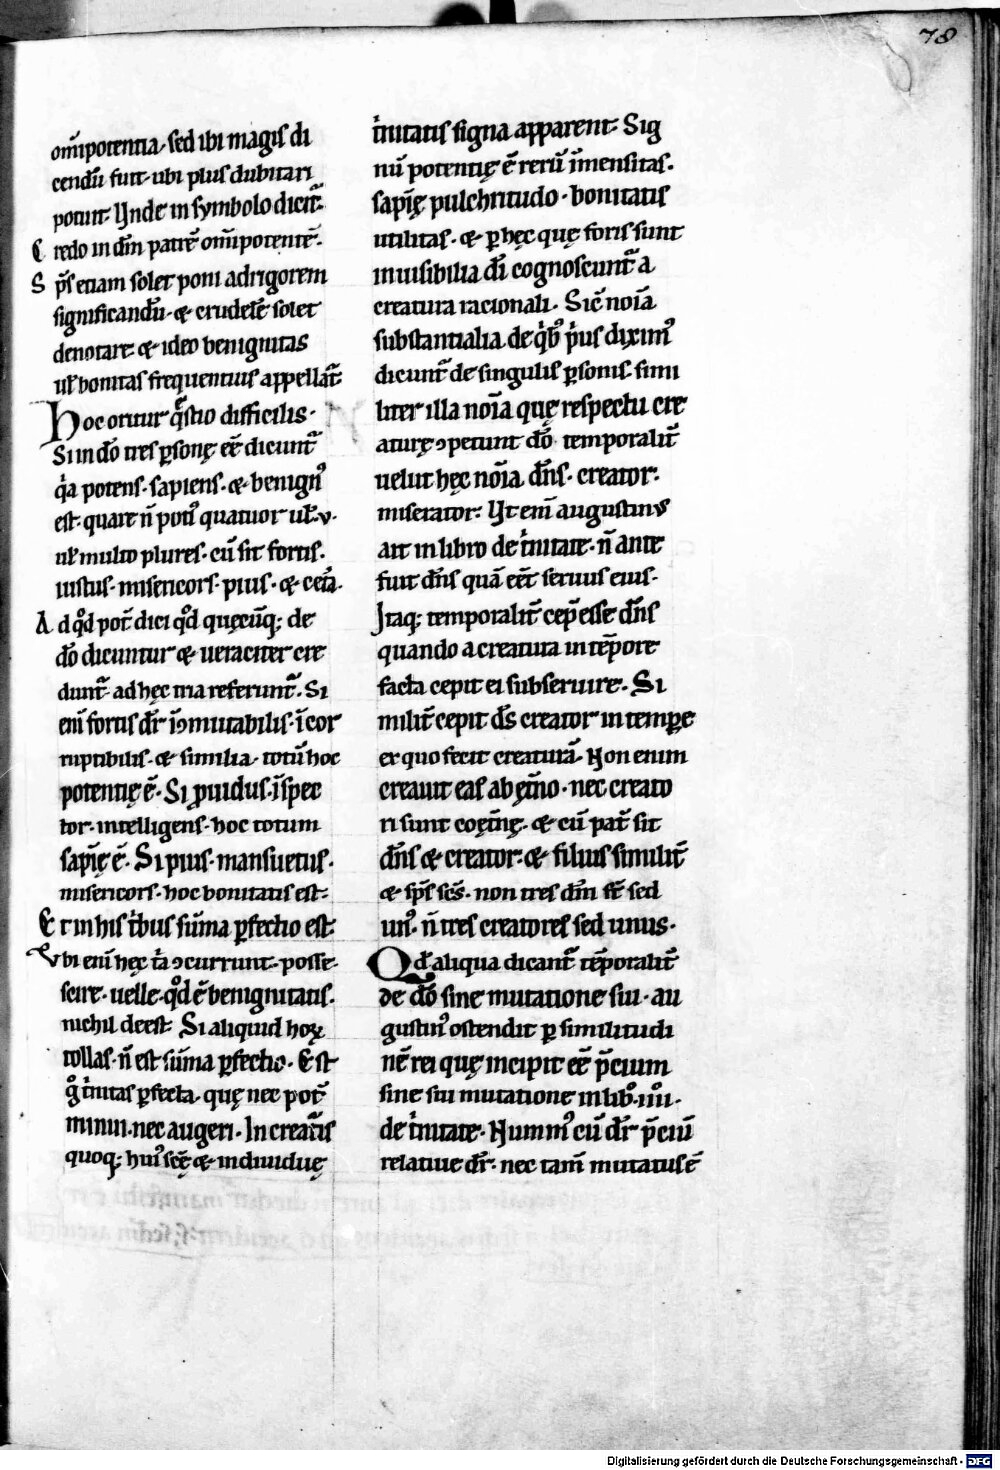 78
om̅ipotentia. sed ibi magis di
cendu̅ fuit. ubi plus dubitari
potuit. Unde in symbolo dicit̅.
Credo in du̅m patre̅ om̅ipotente̅.
Sp̅s etiam solet poni ad rigorem
significandu̅. & crudele̅ solet
denotare. & ideo benignitas
ul̅ bonitas frequentius appellat̅
Hoc oritur q̅stio difficilis.
Si in do̅ tres p̲sonę ee̅ dicunt̅
q̅a potens. sapiens. & benignꝰ
est. quare n̅ potꝰ quatuor ul̅ .v.
ul̅ multo plures. cu̅ sit fortis.
iustus. misericors. pius. & cet̅a.
Ad qd̅ pot̅ dici qd̅ quęcu̅q; de
do̅ dicuntur & ueraciter cre
dunt̅. ad hęc tria referunt̅. Si
eni̅ fortis dr̅. i̅ꝯmutabilis. i̅cor
ruptibilis. & similia. totu̅ hoc
potentię e̅. Si ꝓuidus. i̅spec
tor. intelligens. hoc totum
sapi̅ę e̅. Si pius. mansuetus.
misericors. hoc bonitatis est.
Et in his t̅bus su̅ma p̲fectio est
Vbi eni̅ hęc t̅a ꝯcurrunt. posse.
scire. uelle. qd̅ e̅ benignitatis.
nichil deest. Si aliquid hoꝝ
tollas. n̅ est su̅ma p̲fectio. Est
g̅ t̅nitas p̲fecta. quę nec pot̅
minui. nec augeri. In creat̅is
quoq; huiꝰ sc̅ę & indiuiduę
t̅nitatis signa apparent. Sig
nu̅ potentię e̅ reru̅ i̅mensitas.
sapi̅ę pulchritudo. bonitatis
utilitas. & p̲ hęc quę foris sunt
inuisibilia di̅ cognoscunt̅ a
creatura racionali. Sic̅ noi̅a
substantialia. de qb̅ꝰ p̅us diximꝰ
dicunt̅ de singulis p̲sonis. simi
liter illa noi̅a quę respectu cre
aturę ꝯpetunt do̅ temporalit̅
uelut hęc noi̅a. dn̅s. creator.
miserator. Ut eni̅ augustinus
ait in libro de t̅nitate. n̅ ante
fuit dn̅s qua̅ eet̅ seruus eius.
Itaq; temporalit̅ cep̅ esse dn̅s
quando a creatura in te̅pore
facta cepit ei subseruire. Si
milit̅ cepit ds̅ creator in temp̲e
ex quo fecit creatura̅. Non enim
creauit eas ab ęt̅no. nec creato
ri sunt coęt̅nę. & cu̅ pat̅ sit
dn̅s & creator. & filius similit̅
& sp̅s sc̅s. non tres dn̅i st̅ sed
unꝰ. n̅ tres creatores sed unus.
Qd̅ aliqua dicant̅ te̅poralit̅
de do̅ sine mutatione sui. au
gustinꝰ ostendit p̲ similitudi
ne̅ rei quę incipit ee̅ p̅cium
sine sui mutatione in libꝰ .iiii.
de t̅nitate. Nummꝰ cu̅ dr̅ p̅ciu̅
relatiue dr̅. nec tam̅ mutatus e̅
Digitalisierung gefördert durch die Deutsche Forschungsgemeinschaft - DFG